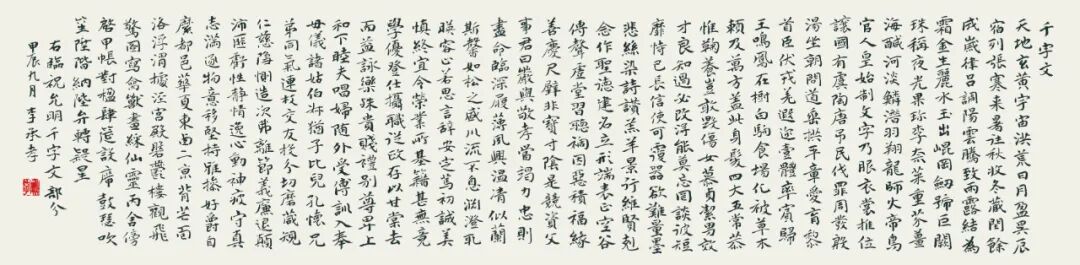 千字文
天地玄黃宇宙洪荒日月盈昃辰
宿列張寒來暑往秋收冬藏閏餘
成歲律呂調陽雲騰致雨露結為
霜金生麗水玉出崐岡劒號巨闕
珠稱夜光果珍李柰菜重芥薑
海醎河淡鱗潛羽翔龍師火帝鳥
官人皇始制文字乃服衣裳推位
讓國有虞陶唐弔民伐罪周發殷
湯坐朝問道垂拱平章愛育黎
首臣伏戎羌遐迩壹體率賓歸
王鳴鳳在樹白駒食場化被草木
賴及萬方蓋此身髮四大五常恭
惟鞠養豈敢毀傷女慕貞潔男效
才良知過必改得能莫忘罔談彼短
靡恃己長信使可覆器欲難量墨
悲絲染詩讚羔羊景行維賢剋
念作聖德建名立形端表正空谷
傳聲虛堂習聽禍因惡積福緣
善慶尺璧非寶寸陰是競資父
事君曰嚴與敬孝當竭力忠則
盡命臨深履薄夙興溫凊似蘭
斯馨如松之盛川流不息淵澄取
暎容止若思言辭安定篤初誠美
慎終宜令榮業所基籍甚無竟
學優登仕攝職從政存以甘棠去
而益詠樂殊貴賤禮別尊卑上
和下睦夫唱婦隨外受傅訓入奉
母儀諸姑伯叔猶子比兒孔懷兄
弟同氣連枝交友投分切磨箴規
仁慈隱惻造次弗離節義廉退顛
沛匪虧性靜情逸心動神疲守真
志滿逐物意移堅持雅操好爵自
縻都邑華夏東西二京背芒面
洛浮渭據涇宮殿磐鬱樓觀飛
驚圖寫禽獸畫綵仙靈丙舍傍
啓甲帳對楹肆筵設席鼓瑟吹
笙陞階納陛弁轉疑星
右臨祝允明千字文部分
甲辰九月李承孝